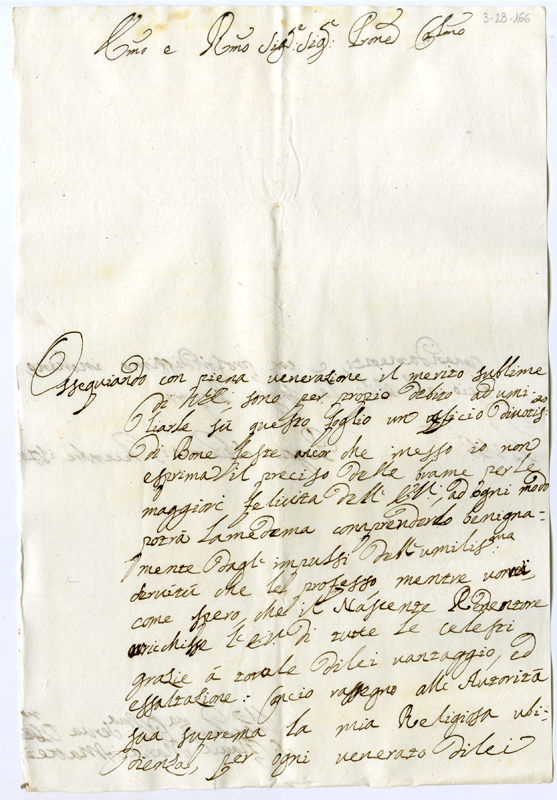 3-28-166
E.mo e R.mo Sig.re Sig.re Prone Col.mo
Ossequiando con piena venerazione il merito sublime
di V.E., sono per propio debito ad umi
liarle sù questo foglio un officio divotis:mo
di Bone feste ancor che messo io non
esprima il preciso delle brame per le
maggiori felicità dell' E.V., ad ogni modo
potrà lamedema comprenderlo benigna-
mente dagl' impulsi dell' umilis:ma
servitù che le professo mentre vorrei
come spero, che il Nascente Redentore
aricchisse l' E.V. di tutte le celesti
grazie à totale dilei vantaggio, ed
essaltazione: Concio rassegno alle Autorità
sua suprema la mia Religiosa ubi-
dienza, per ogni venerato dilei